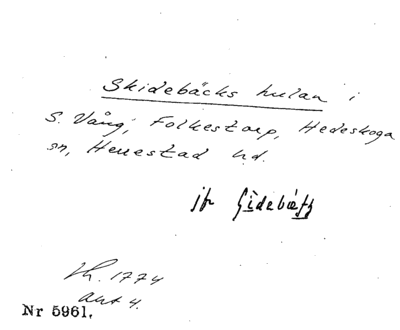 Skidebäcks hulan i
S. Vång, Folkestorp, Hedeskoga
sn, Herrestad hd.
jfr Gidebäck
Lh. 1774
akt 4.
Nr 5961.